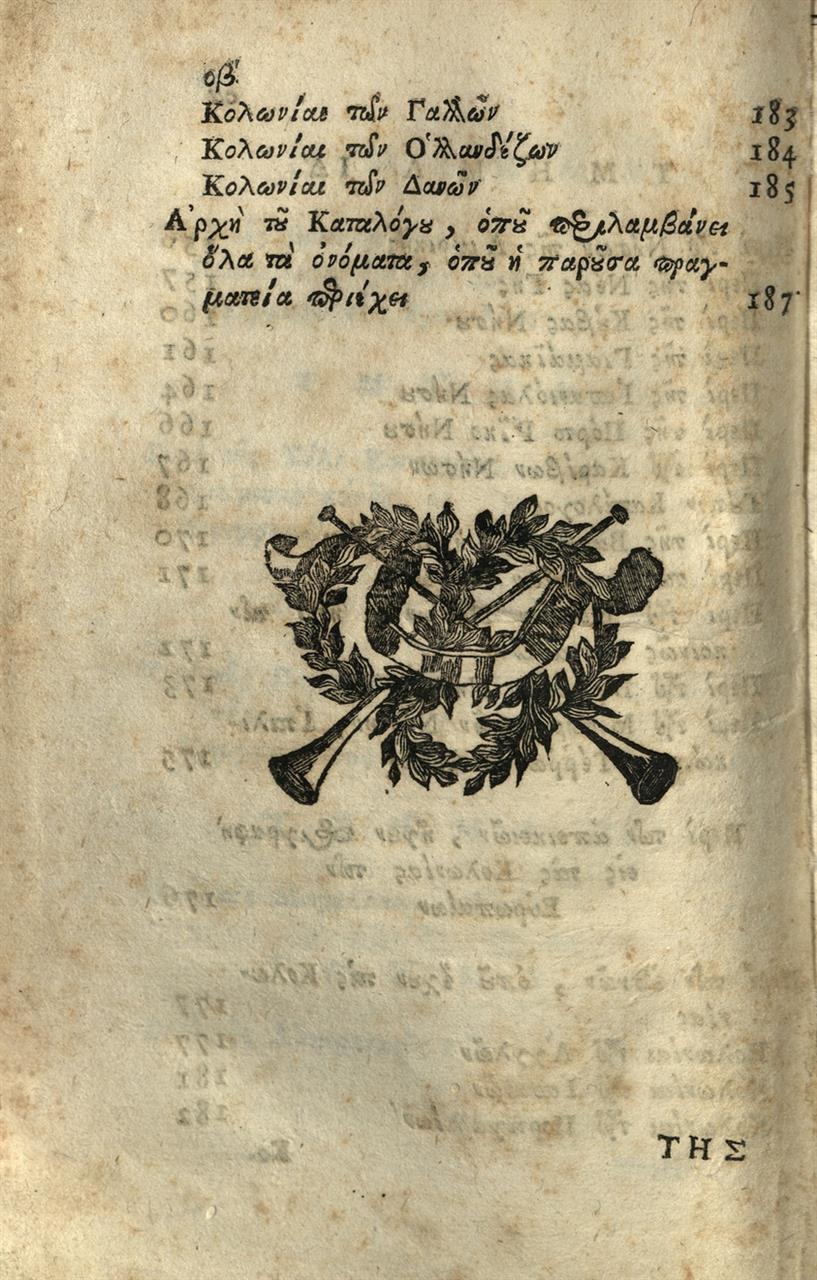 οβ'
Κολωνίαι τῶν Γαλλῶν 183
Κολωνίαι τῶν Ὁλλανδέζων 184
Κολωνίαι τῶν Δανῶν 185
Ἀρχὴ τȣ͂ Καταλόγȣ, ὁπȣ͂ περιλαμβάνει
ὅλα τὰ ὀνόματα, ὁπȣ͂ ἡ παρȣ͂σα πραγ-
ματεία περιέχει 187
ΤΗΣ